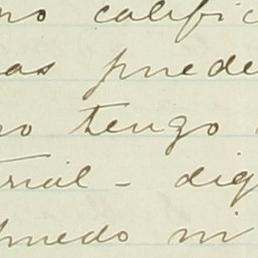 no califi
as puede
no tengo
rial - dig
puedo ni